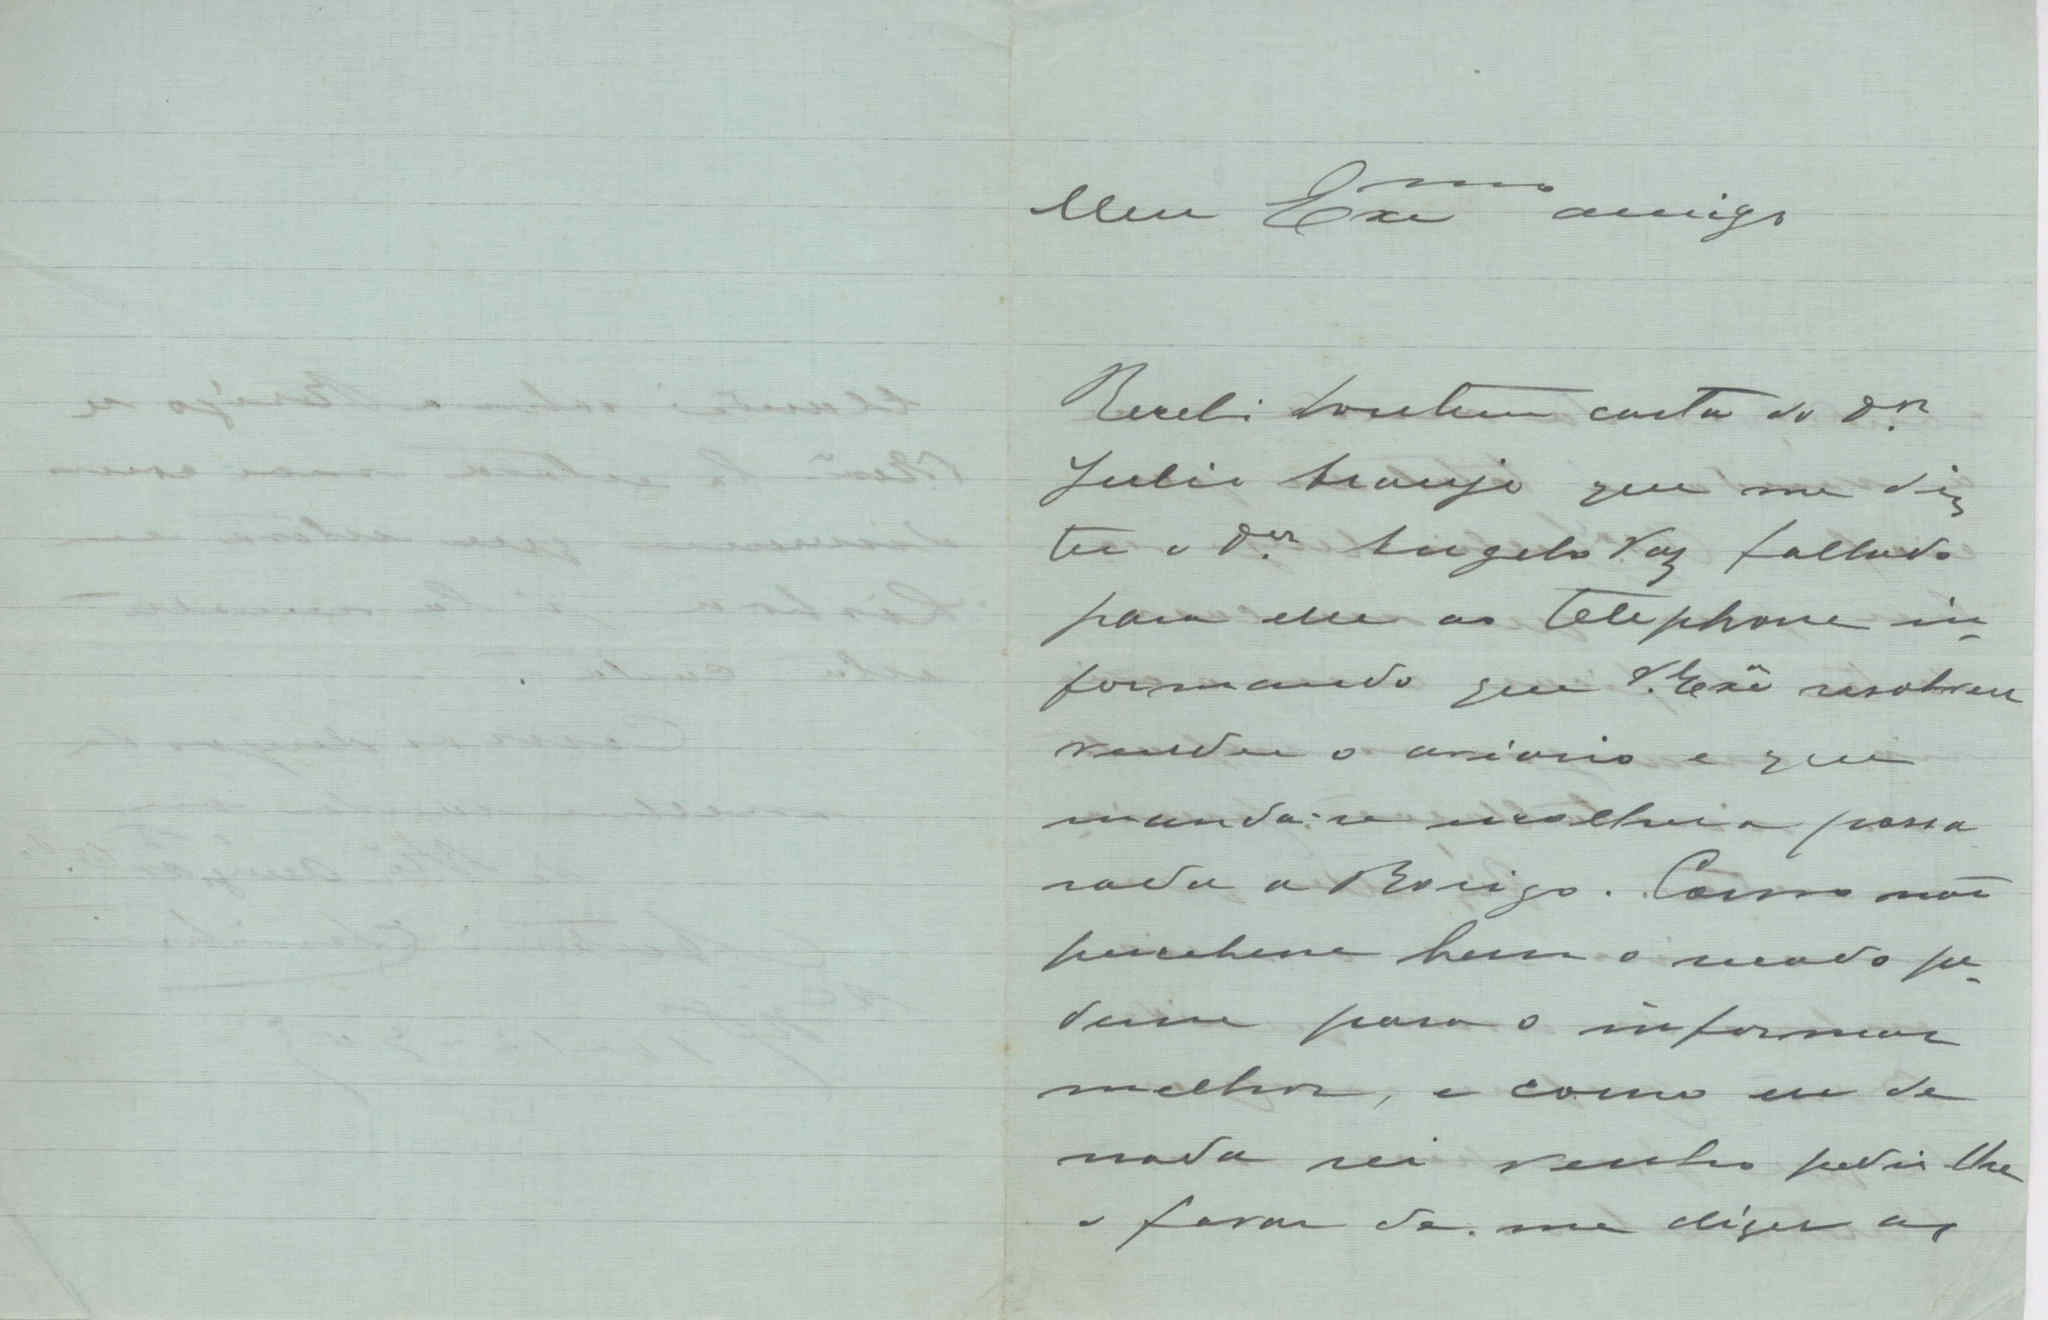 Meu Exmo amigo
Recebi hontem carta do Dr.
Julio Araujo que me diz
ter o Dr. Angelo Vaz fallado
para elle ao telephone in-
formando que V. Exa resolveu
vender o aviario e que
manda-se escolher a passa
rada a Barrigo. Como não
percebeu bem o recado pe-
deme para o informar
melhor, e como eu de
nada sei venho pedir lhe
o favor de me dizer as